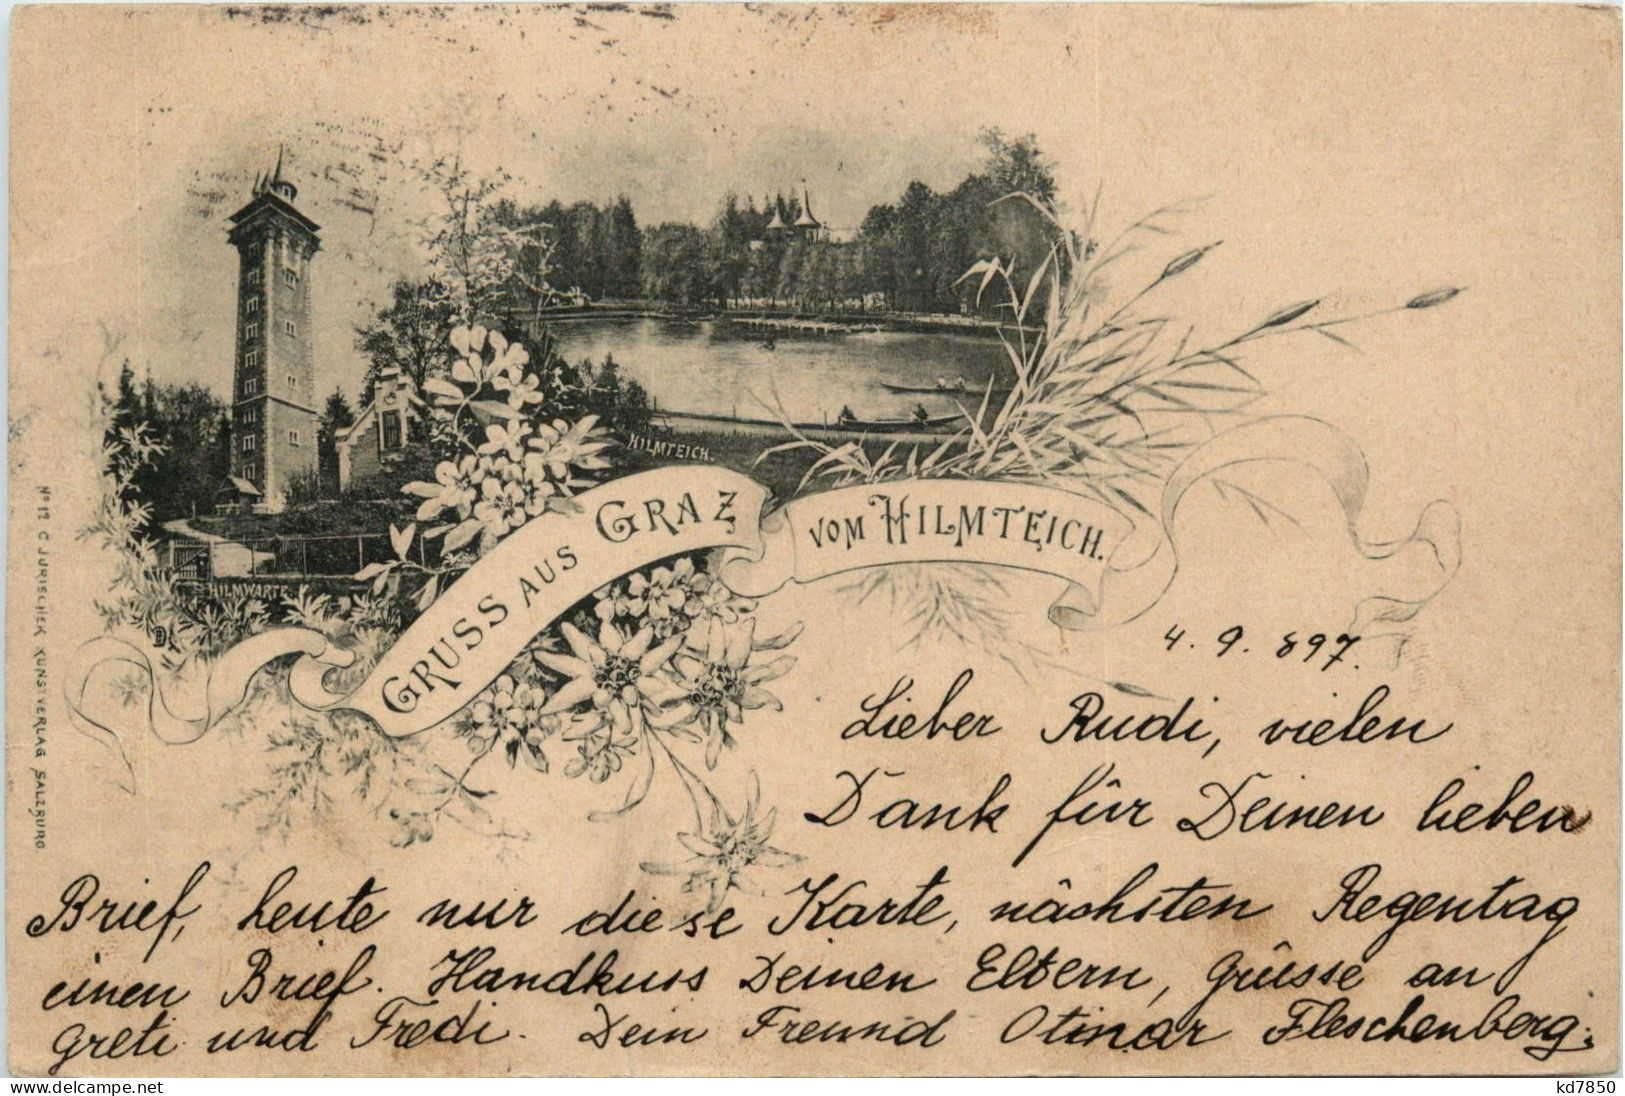 HILMTEICH.
GRUSS AUS GRAZ
VOM HILMTEICH.
HILMWARTE.
No 12 C JURISCHEK KUNSTVERLAG SALZBURG
4. 9. 897.
Lieber Rudi, vielen
Dank für Deinen lieben
Brief, heute nur diese Karte, nächsten Regentag
einen Brief. Handkuss Deinen Eltern, Grüsse an
Greti und Fredi. Dein Freund Otmar Fleschenberg.
delcampe.net
kd7850